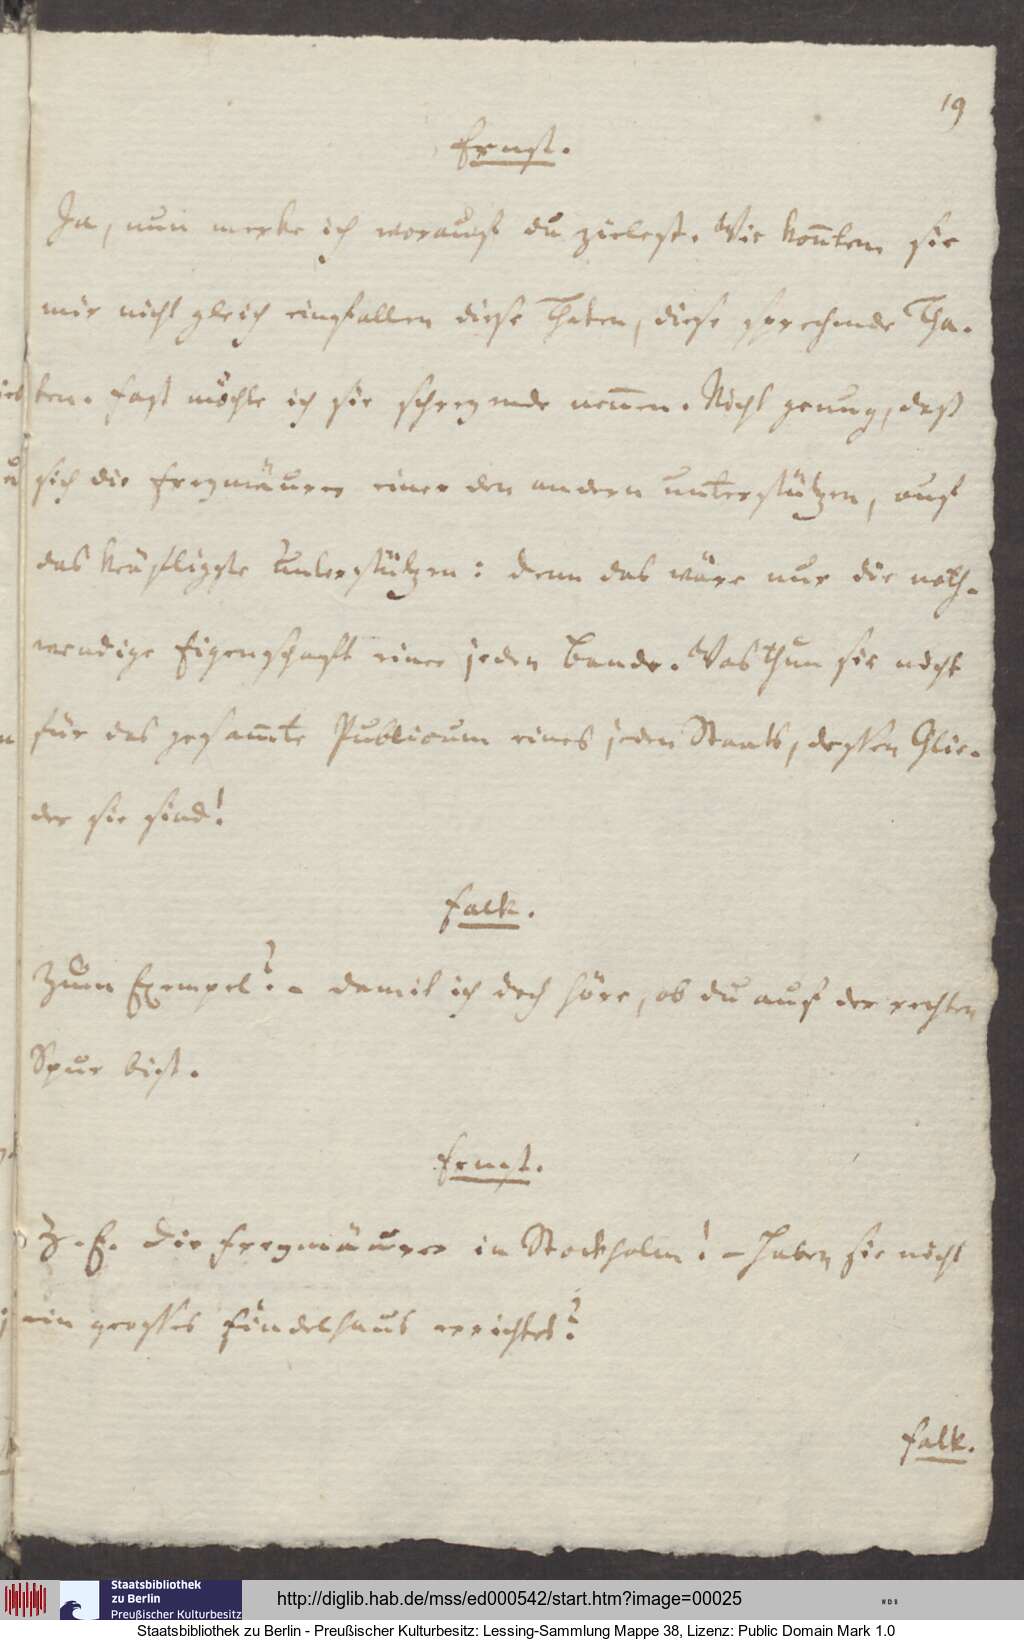 19
Ernst.
Ja, nun merke ich worauf du zielest. Wie kom̅ten sie
mir nicht gleich einfallen diese Thaten, diese sprechende Tha-
ten. Fast möchte ich sie schreyende nen̅en. Nicht genug, daß
sich die Freymäurer einer den andern unterstützen, auf
das kräftigste unterstützen: denn das wäre nur die noth-
wendige Eigenschaft einer jeden Bande. Was thun sie nicht
für das gesam̅te Publicum eines jeden Staats, dessen Glie-
der sie sind!
Falk.
Zum Exempel? - damit ich doch höre, ob du auf der rechten
Spur bist.
Ernst.
Z. E. die Freymäurer in Stockholm! - Haben sie nicht
ein grosses Findelhaus errichtet?
Falk.
Staatsbibliothek
zu Berlin
Preußischer Kulturbesitz
http://diglib.hab.de/mss/ed000542/start.htm?image=00025
Staatsbibliothek zu Berlin - Preußischer Kulturbesitz: Lessing-Sammlung Mappe 38, Lizenz: Public Domain Mark 1.0